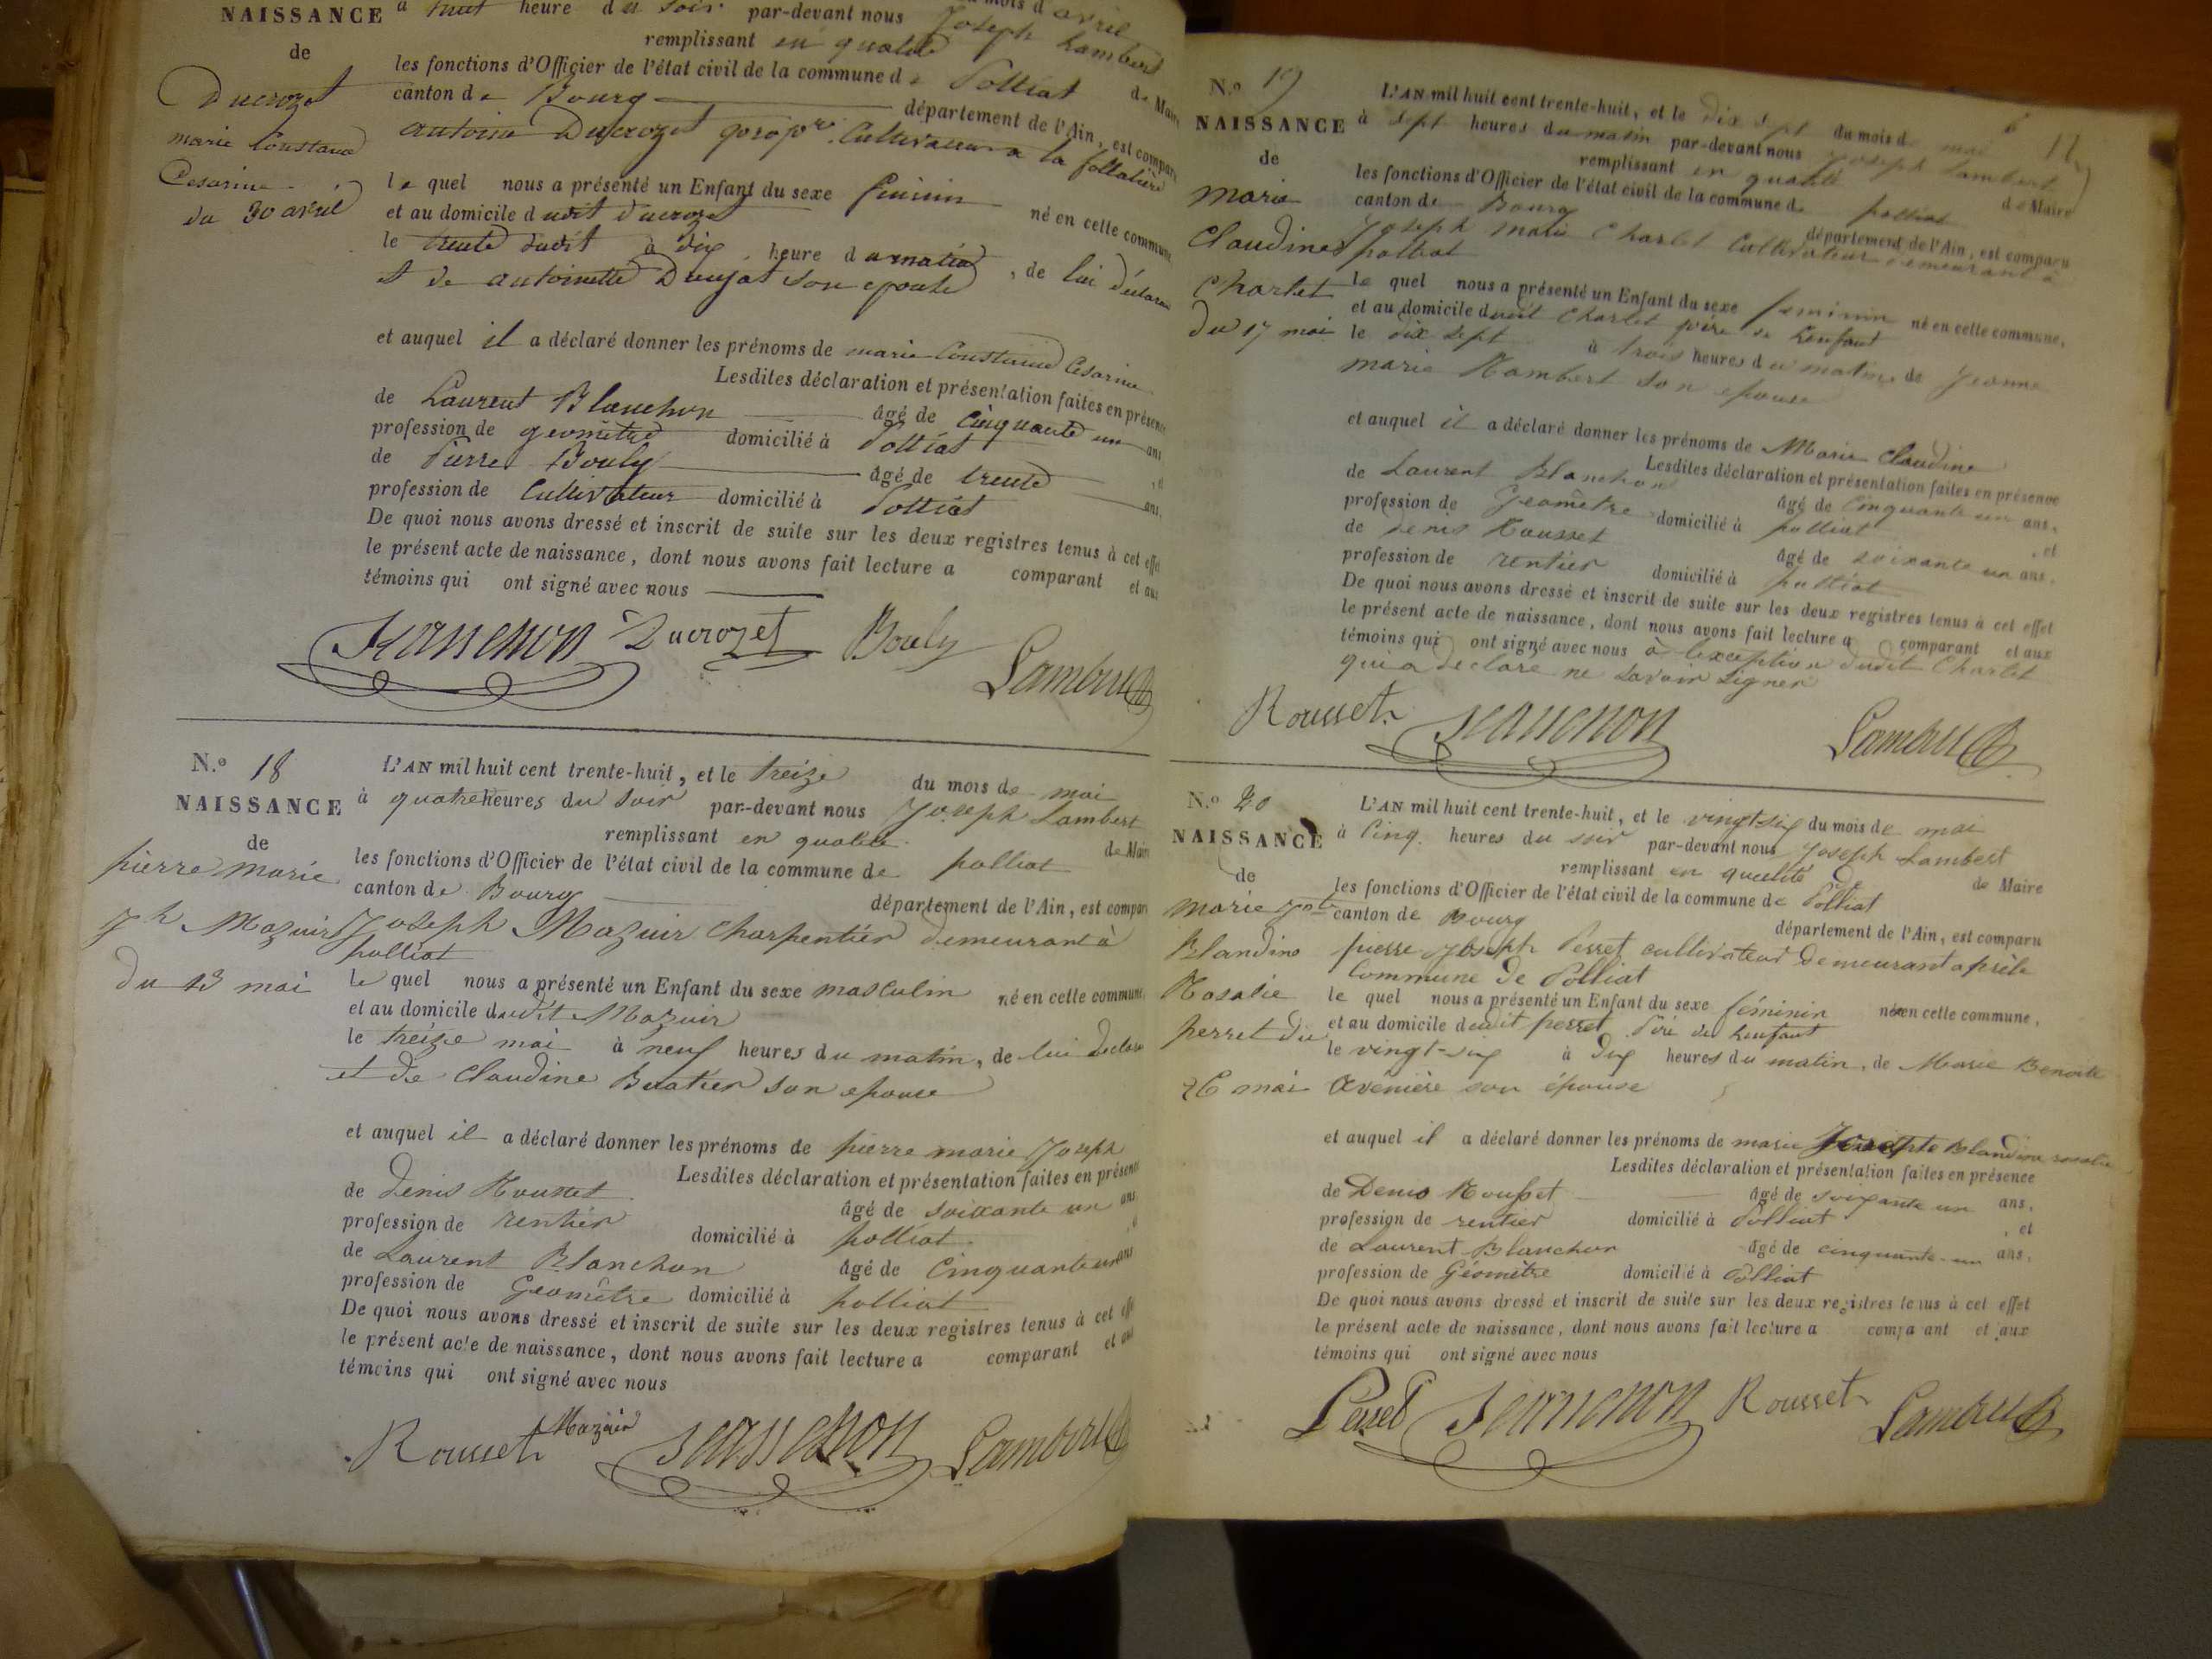 du mois d'avril
NAISSANCE à huit heure du soir par-devant nous Joseph Lambert
de remplissant en qualité de Maire
les fonctions d'Officier de l'état civil de la commune de Polliat
Ducrozet canton de Bourg département de l'Ain, est comparu
marie Constance antoine Ducrozet propre. Cultivateur a la
Cesarine le quel nous a présenté un Enfant du sexe feminin né en cette commune
du 30 avril et au domicile dudit Ducrozet
le trente dudit à dix heure du matin, de lui déclarant
et de antoinette son epouse
et auquel il a déclaré donner les prénoms de marie Constance Cesarine
Lesdites déclaration et présentation faites en présence
de Laurent Blanchon âgé de Cinquante un ans
profession de geometre domicilié à Polliat , et
de Pierre Bouly âgé de trente ans.
profession de Cultivateur domicilié à Polliat
De quoi nous avons dressé et inscrit de suite sur les deux registres tenus à cet effet
le présent acte de naissance, dont nous avons fait lecture a comparant et aux
témoins qui ont signé avec nous
Blanchon Ducrozet Bouly
Lambert
N.º 18 L'AN mil huit cent trente-huit, et le treize du mois de mai
NAISSANCE à quatre heures du soir par-devant nous Joseph Lambert
de remplissant en qualité de Maire
pierre marie les fonctions d'Officier de l'état civil de la commune de polliat
canton de Bourg département de l'Ain, est comparu
Jh Mazuir Joseph Mazuir Charpentier demeurant à
polliat
du 13 mai le quel nous a présenté un Enfant du sexe masculin né en cette commune,
et au domicile dudit Mazuir
le treize mai à neuf heures du matin, de lui declarant
et de Claudine Buatier son epouse
et auquel il a déclaré donner les prénoms de pierre marie Joseph
Lesdites déclaration et présentation faites en présence
de Denis Rousset âgé de soixante un ans
profession de rentier domicilié à polliat , et
de Laurent Blanchon âgé de Cinquante un ans
profession de Geomètre domicilié à polliat
De quoi nous avons dressé et inscrit de suite sur les deux registres tenus à cet effet
le présent acte de naissance, dont nous avons fait lecture a comparant et aux
témoins qui ont signé avec nous
Rousset Mazuir Blanchon Lambert
N.º 19 L'AN mil huit cent trente-huit, et le dix sept du mois de mai
NAISSANCE à sept heures du matin par-devant nous Joseph Lambert
de remplissant en qualité de Maire
les fonctions d'Officier de l'état civil de la commune de polliat
maria canton de Bourg département de l'Ain, est comparu
Claudine Joseph marie Charlet Cultivateur demeurant à
polliat
Charlet le quel nous a présenté un Enfant du sexe feminin né en cette commune,
et au domicile dudit Charlet père de Lenfant
du 17 mai le dix sept à trois heures du matin, de Jeanne
marie Rambert son epouse
et auquel il a déclaré donner les prénoms de Marie Claudine
Lesdites déclaration et présentation faites en présence
de Laurent Blanchon âgé de Cinquante un ans.
profession de Geomètre domicilié à polliat , et
de Denis Rousset âgé de soixante un ans.
profession de rentier domicilié à polliat
De quoi nous avons dressé et inscrit de suite sur les deux registres tenus à cet effet
le présent acte de naissance, dont nous avons fait lecture a comparant et aux
témoins qui ont signé avec nous à lexception dudit Charlet
qui a declaré ne savoir signer
Rousset Blanchon Lambert
N.º 20 L'AN mil huit cent trente-huit, et le vingt-six du mois de mai
NAISSANCE à Cinq heures du soir par-devant nous Joseph Lambert
de remplissant en qualité de de Maire
les fonctions d'Officier de l'état civil de la commune de Polliat
marie canton de Bourg département de l'Ain, est comparu
Blandine pierre Joseph Perret cultivateur demeurant
Commune de Polliat
Rosalie le quel nous a présenté un Enfant du sexe féminin né en cette commune,
perret du et au domicile dudit perret Père de Lenfant
le vingt-six à dix heures du matin, de Marie Benoite
26 mai son épouse
et auquel il a déclaré donner les prénoms de marie Josephte Blandine rosalie
Lesdites déclaration et présentation faites en présence
de Denis Rousset âgé de soixante un ans,
profession de rentier domicilié à Polliat , et
de Laurent Blanchon âgé de cinquante-un ans.
profession de Géomètre domicilié à Polliat
De quoi nous avons dressé et inscrit de suite sur les deux registres tenus à cet effet
le présent acte de naissance, dont nous avons fait lecture a comparant et aux
témoins qui ont signé avec nous
Perret Blanchon Rousset Lambert